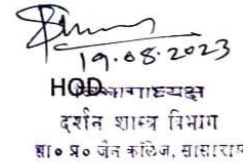 19.08.2023
HOD
दर्शन शास्त्र विभाग
शा० प्र० जैन कॉलेज, सासाराम